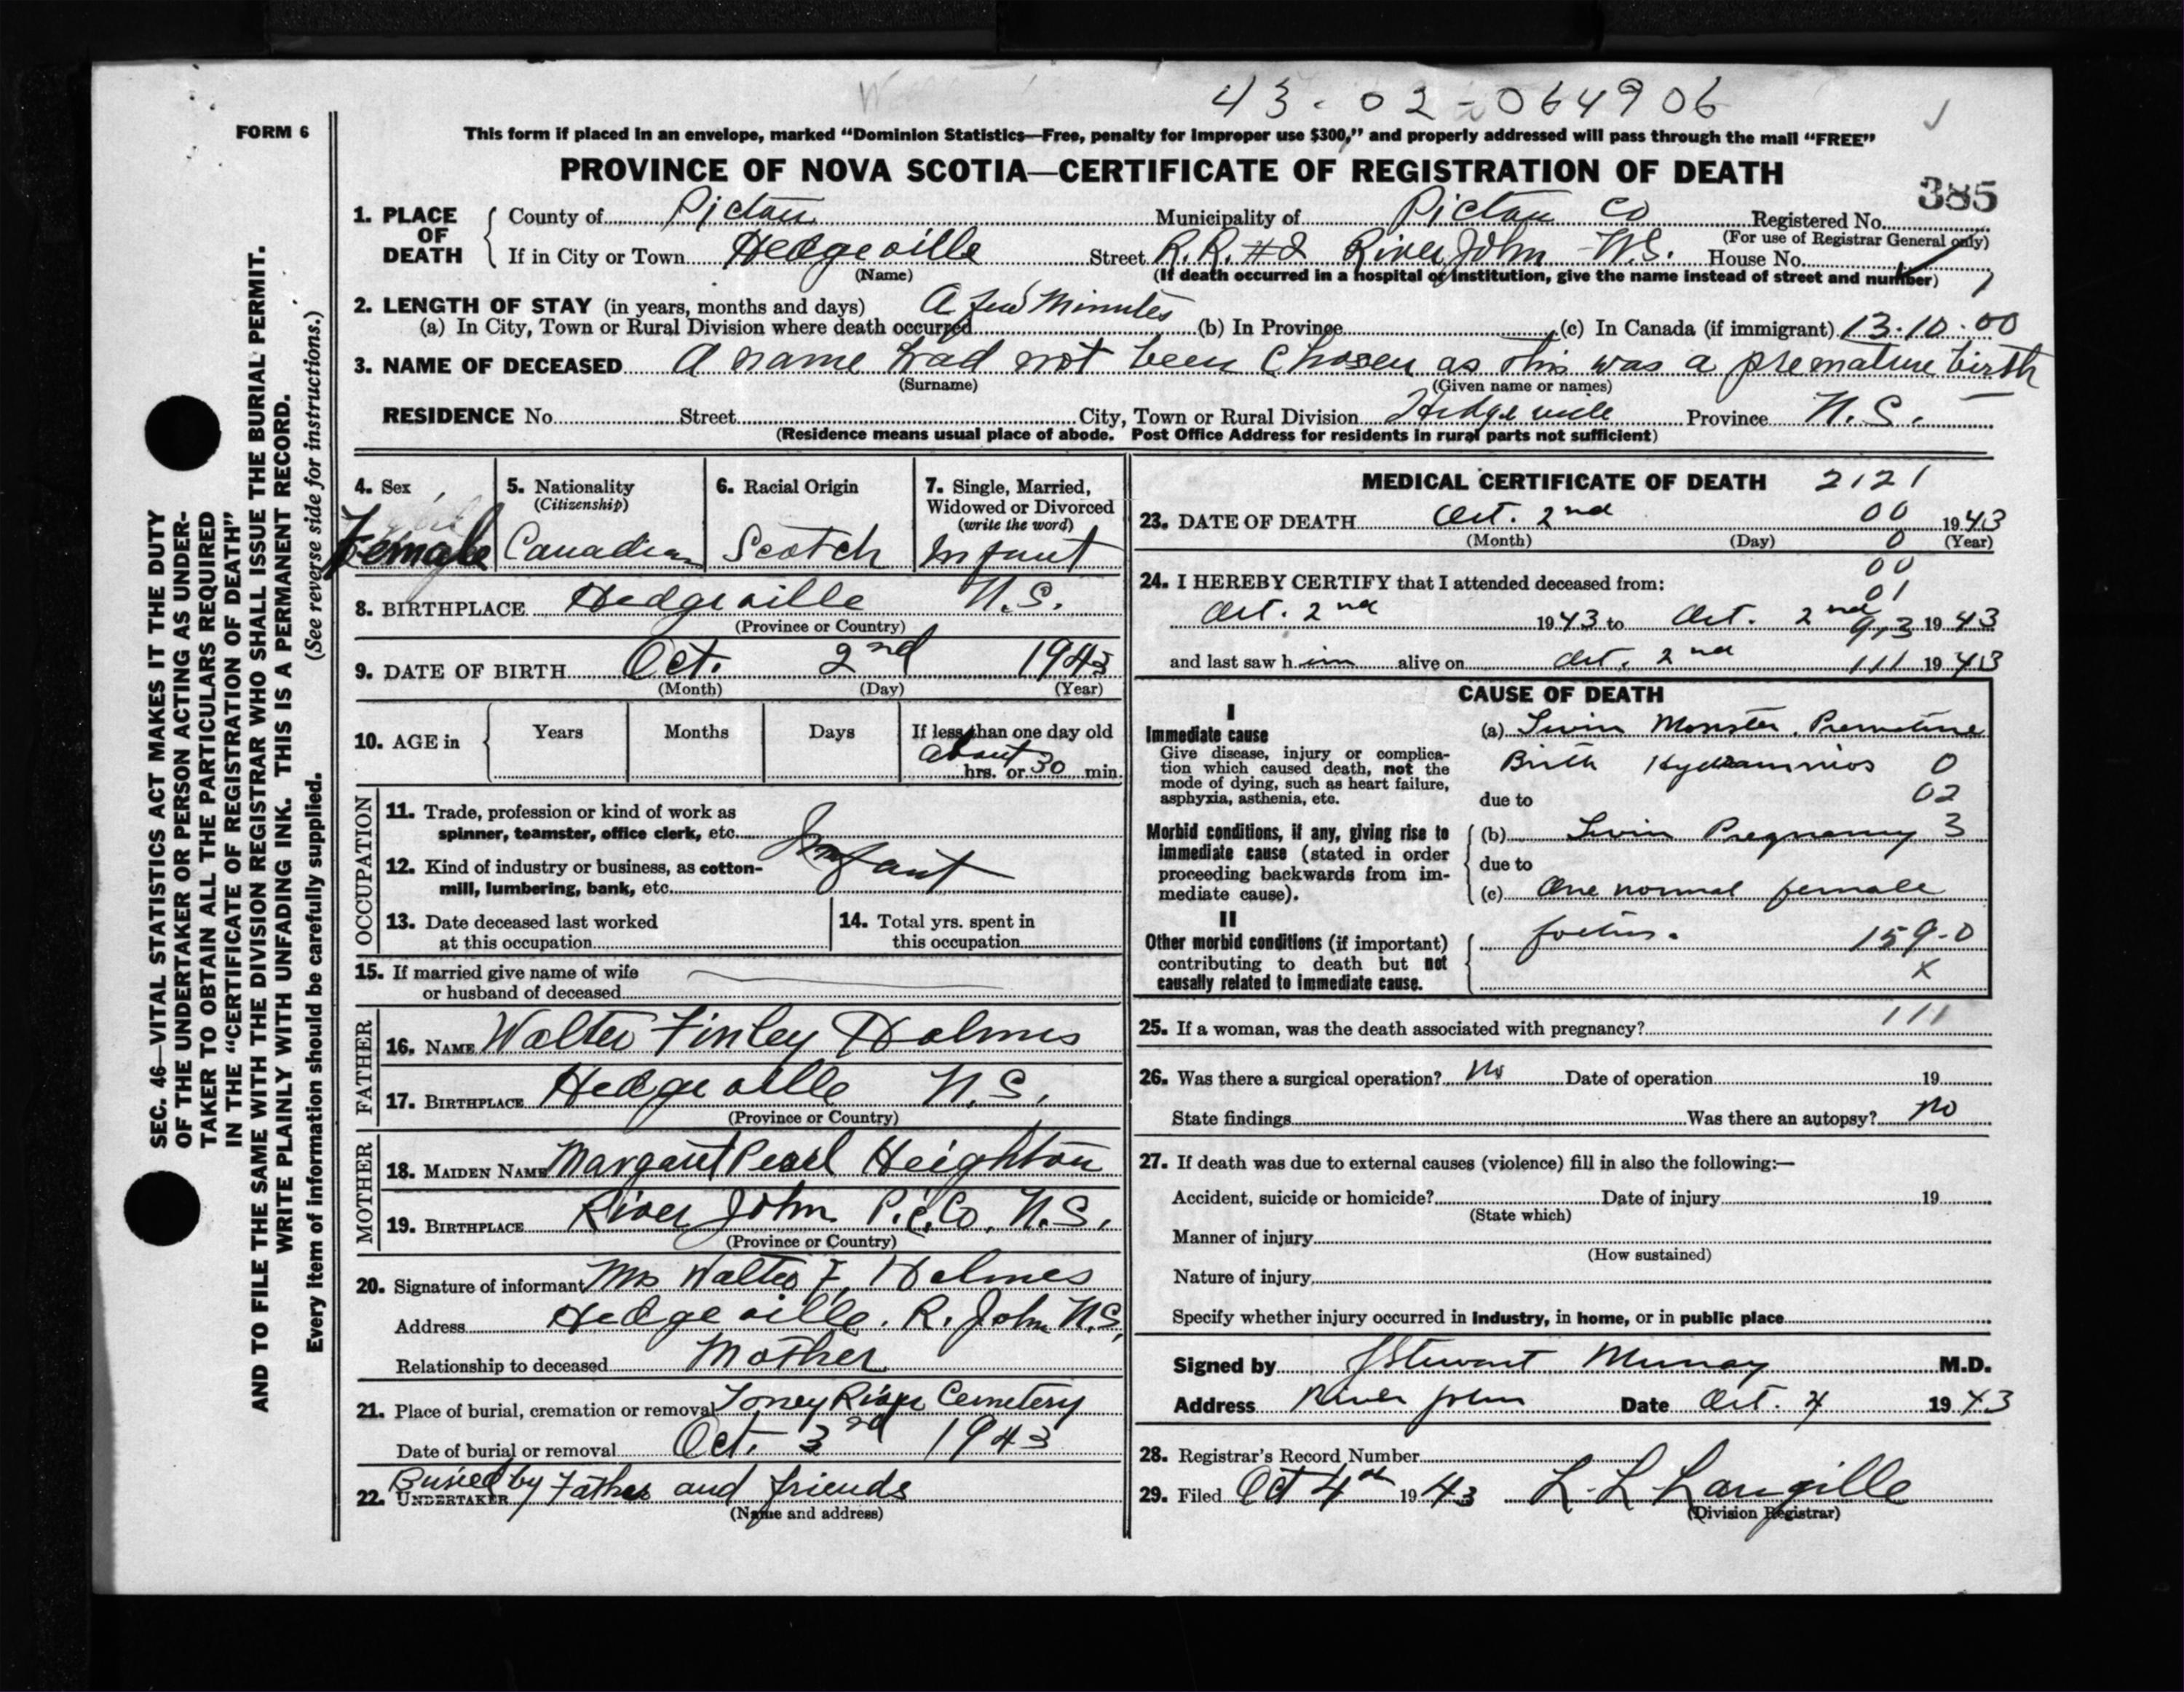 43-02-064906
FORM 6
This form if placed in an envelope, marked “Dominion Statistics—Free, penalty for improper use $300,” and properly addressed will pass through the mail “FREE”
PROVINCE OF NOVA SCOTIA—CERTIFICATE OF REGISTRATION OF DEATH
385
1. PLACE OF DEATH
County of Pictou Municipality of Pictou Co Registered No.
(For use of Registrar General only)
If in City or Town Hedgeville Street R.R. #2 River John N.S. House No.
(Name) (If death occurred in a hospital or institution, give the name instead of street and number)
2. LENGTH OF STAY (in years, months and days) A few Minutes
(a) In City, Town or Rural Division where death occurred (b) In Province (c) In Canada (if immigrant) 13.10.00
3. NAME OF DECEASED A name had not been chosen as this was a premature birth
(Surname) (Given name or names)
RESIDENCE No. Street City, Town or Rural Division Hedgeville Province N.S.
(Residence means usual place of abode. Post Office Address for residents in rural parts not sufficient)
4. Sex Female
5. Nationality (Citizenship) Canadian
6. Racial Origin Scotch
7. Single, Married, Widowed or Divorced (write the word) Infant
8. BIRTHPLACE Hedgeville N.S.
(Province or Country)
9. DATE OF BIRTH Oct. 2nd 1943
(Month) (Day) (Year)
10. AGE in Years Months Days If less than one day old
about hrs. or 30 min.
OCCUPATION
11. Trade, profession or kind of work as
spinner, teamster, office clerk, etc.
Infant
12. Kind of industry or business, as cotton-
mill, lumbering, bank, etc.
13. Date deceased last worked
at this occupation
14. Total yrs. spent in
this occupation
15. If married give name of wife
or husband of deceased
FATHER
16. NAME Walter Finley Holmes
17. BIRTHPLACE Hedgeville N.S.
(Province or Country)
MOTHER
18. MAIDEN NAME Margaret Pearl Heighton
19. BIRTHPLACE River John Pic. Co. N.S.
(Province or Country)
20. Signature of informant Mrs Walter F. Holmes
Address Hedgeville. R. John N.S.
Relationship to deceased Mother
21. Place of burial, cremation or removal Toney River Cemetery
Date of burial or removal Oct. 3rd 1943
22. UNDERTAKER Buried by Father and friends
(Name and address)
MEDICAL CERTIFICATE OF DEATH 2121
23. DATE OF DEATH Oct. 2nd 00 1943
(Month) (Day) 0 (Year)
00
24. I HEREBY CERTIFY that I attended deceased from: 01
Oct. 2nd 1943 to Oct. 2nd 913 1943
and last saw him alive on Oct. 2nd 111 1943
CAUSE OF DEATH
I
Immediate cause
Give disease, injury or complica-
tion which caused death, not the
mode of dying, such as heart failure,
asphyxia, asthenia, etc.
(a) Twin Monster. Premature
Birth Hydramnios 0
due to 02
Morbid conditions, if any, giving rise to
immediate cause (stated in order
proceeding backwards from im-
mediate cause).
(b) Twin Pregnancy 3
due to
(c) One normal female
II
Other morbid conditions (if important)
contributing to death but not
causally related to immediate cause.
foetus. 159-0
x
111
25. If a woman, was the death associated with pregnancy?
26. Was there a surgical operation? No Date of operation 19
State findings Was there an autopsy? No
27. If death was due to external causes (violence) fill in also the following:—
Accident, suicide or homicide? Date of injury 19
(State which)
Manner of injury
(How sustained)
Nature of injury
Specify whether injury occurred in industry, in home, or in public place
Signed by J Stewart Murray M.D.
Address River John Date Oct. 4 1943
28. Registrar's Record Number
29. Filed Oct 4th 1943 L. L Langille
(Division Registrar)
SEC. 46—VITAL STATISTICS ACT MAKES IT THE DUTY
OF THE UNDERTAKER OR PERSON ACTING AS UNDER-
TAKER TO OBTAIN ALL THE PARTICULARS REQUIRED
IN THE “CERTIFICATE OF REGISTRATION OF DEATH”
AND TO FILE THE SAME WITH THE DIVISION REGISTRAR WHO SHALL ISSUE THE BURIAL PERMIT.
WRITE PLAINLY WITH UNFADING INK. THIS IS A PERMANENT RECORD.
Every item of information should be carefully supplied. (See reverse side for instructions.)